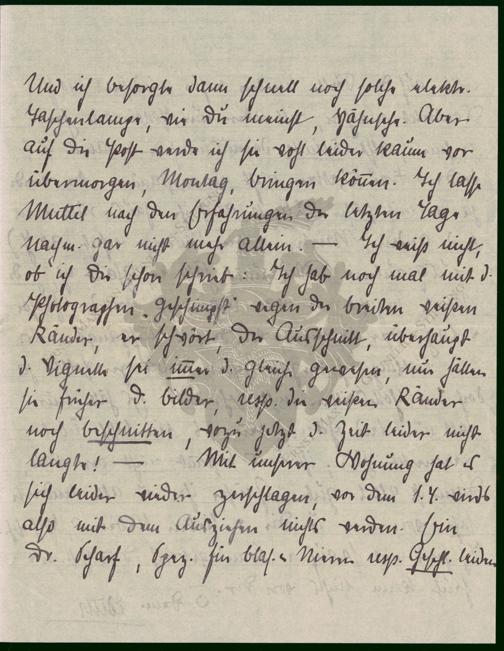 Und ich besorgte dann schnell noch solche elektr.
Taschenlampe, wie Du meinst, Jähnsche. Aber
auf die Post werde ich sie wohl leider kaum vor
übermorgen, Montag, bringen können. Ich lasse
Muttel nach den Erfahrungen der letzten Tage
nachm. gar nicht mehr allein. — Ich weiß nicht,
ob ich Dir schon schrieb: Ich hab noch mal mit d.
Photographen „geschimpft" wegen der breiten weißen
Ränder, er schwört, der Ausschnitt, überhaupt
d. Vignette sei immer d. gleiche gewesen, nur hätten
sie früher d. Bilder, resp. die weißen Ränder
noch beschnitten, wozu jetzt d. Zeit leider nicht
langte! — Mit unserer Wohnung hat es
sich leider wieder zerschlagen, vor dem 1.4. wirds
also mit dem Ausziehen nichts werden. Ein
Dr. Scharf, Spez. für Blas. u Nieren resp. Geschl. leiden